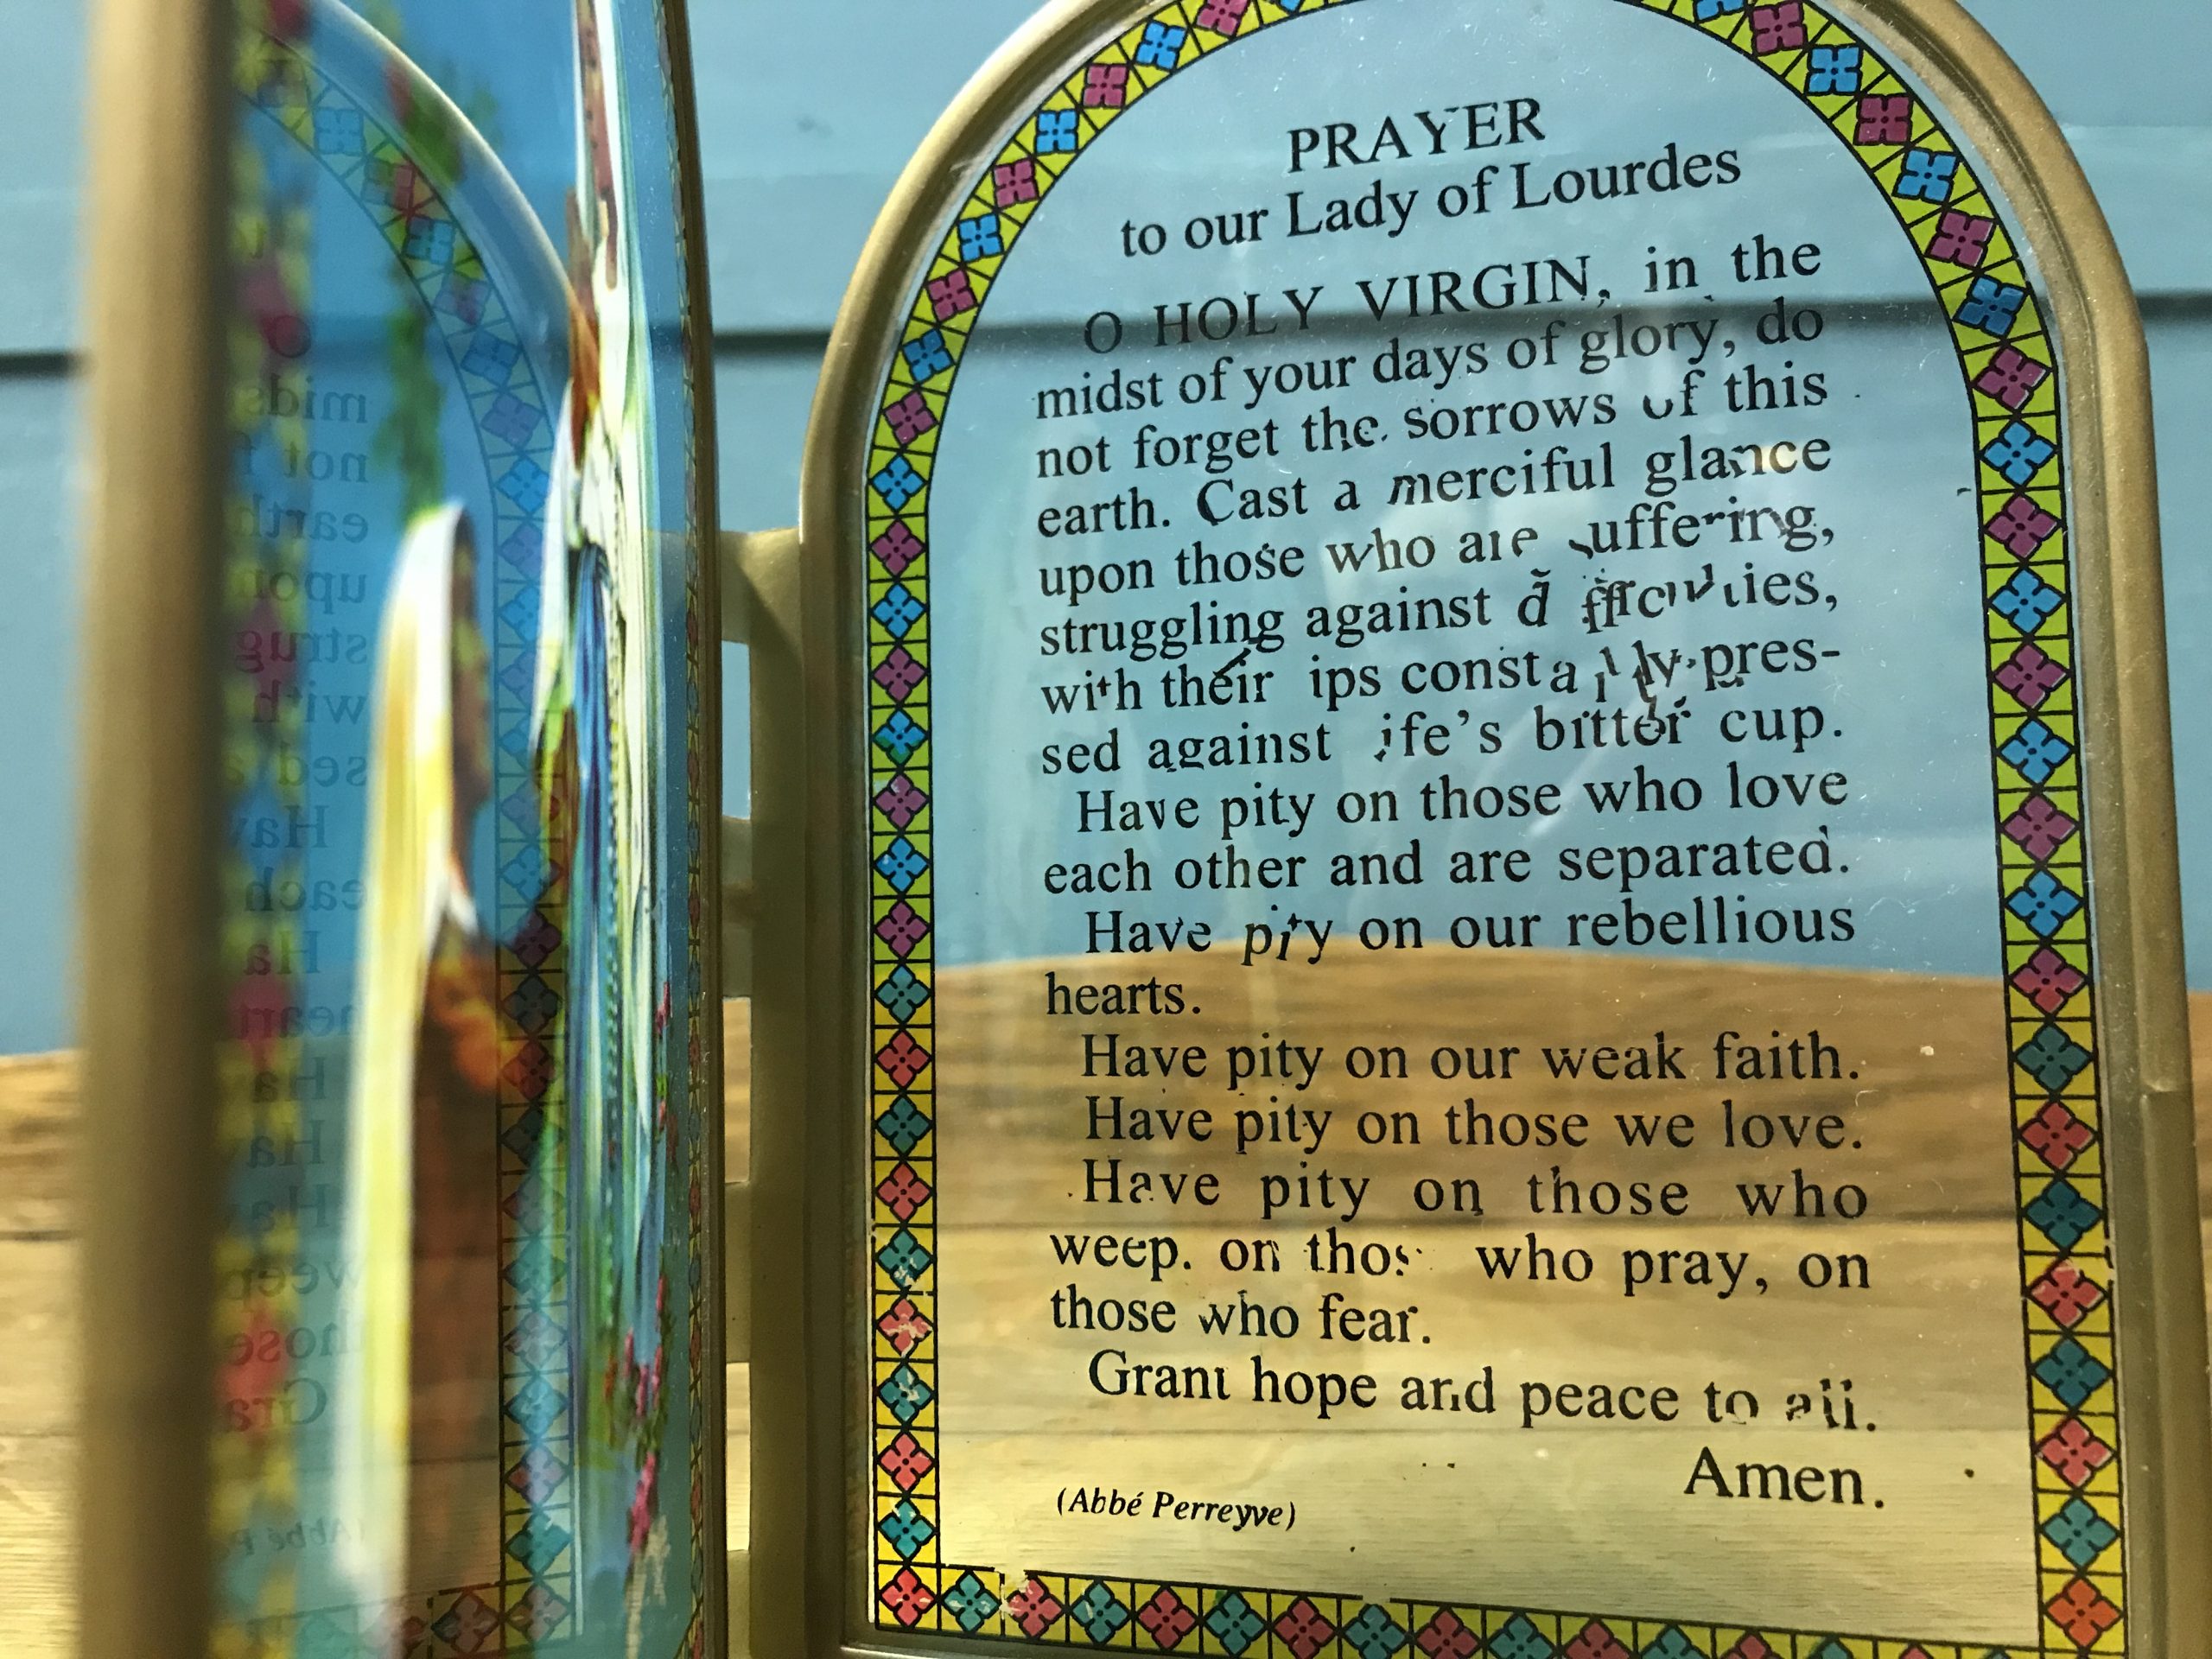 PRAYER
to our Lady of Lourdes
O HOLY VIRGIN, in the
midst of your days of glory, do
not forget the sorrows of this
earth. Cast a merciful glance
upon those who are suffering,
struggling against difficulties,
with their lips constantly pres-
sed against life's bitter cup.
Have pity on those who love
each other and are separated.
Have pity on our rebellious
hearts.
Have pity on our weak faith.
Have pity on those we love.
Have pity on those who
weep, on those who pray, on
those who fear.
Grant hope and peace to all.
Amen.
(Abbé Perreyve)